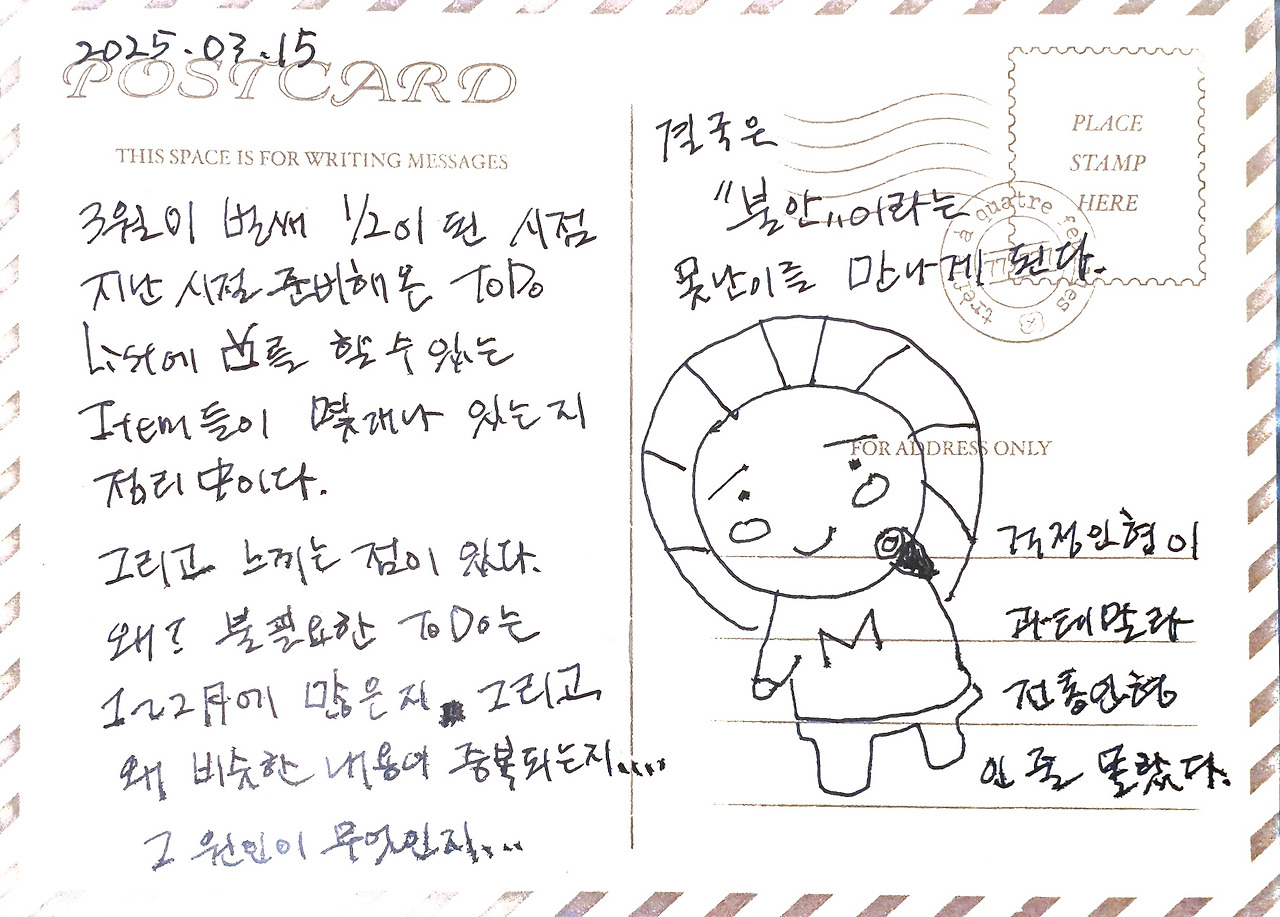 2025.03.15
POSTCARD
THIS SPACE IS FOR WRITING MESSAGES
3월이 벌써 1/2이 된 시점
지난 시절 준비해온 ToDo
List에 를 할 수 있는
Item들이 몇개나 있는지
정리 中이다.
그리고 느끼는 점이 있다.
왜? 불필요한 ToDo는
1~2月에 많은지 그리고
왜 비슷한 내용이 중복되는지....
그 원인이 무엇인지...
결국은
"불안"이라는
못난이를 만나게 된다.
PLACE
STAMP
HERE
à quatre
FOR ADDRESS ONLY
걱정인형이
과테말라
전통인형
인 줄 몰랐다.